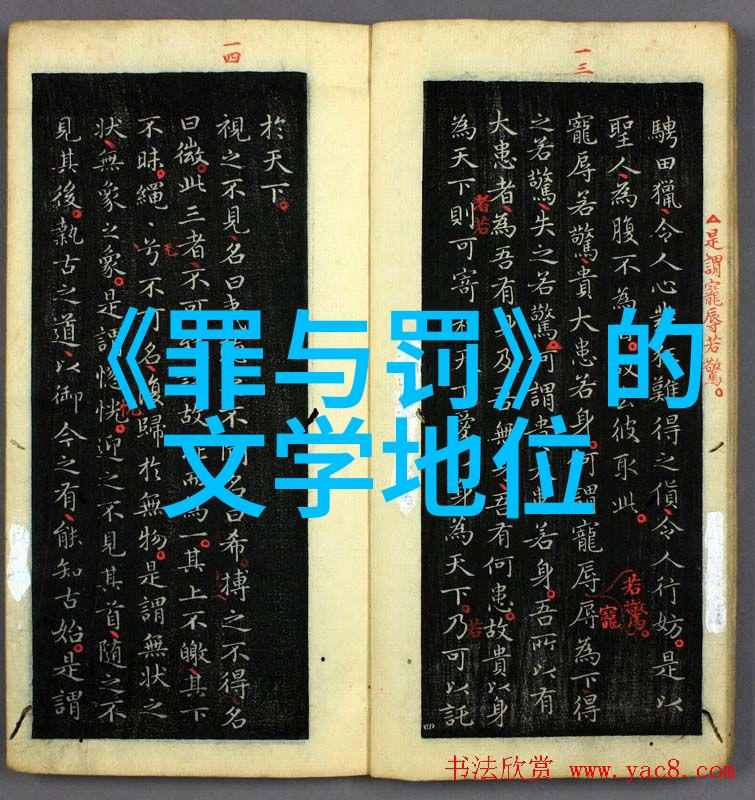 《罪与罚》的
文学地位
一三
△是謂寵辱若驚。
騁田獵令人心難得之貨令人行妨是以
聖人為腹不為彼取此
寵辱若驚貴大患若身謂寵辱辱為下得
之若驚失之若驚可謂患若身吾所以有
大患者為吾有身及吾無吾有何患故貴以身
為天下則可寄天下愛身為天下乃可以託
者若
若驚
寵
若
一四
於天下
視之不見名曰不聞名曰希搏之不得名
曰微此三者不可故而為一其上不皦其下
不昧繩〻兮不可名復歸於無物是謂無状之
状無象之象是謂惚恍迎之不見其首隨之不
見其後執古之道以御今之有能知古始是謂
书法欣赏 www.yac8.com